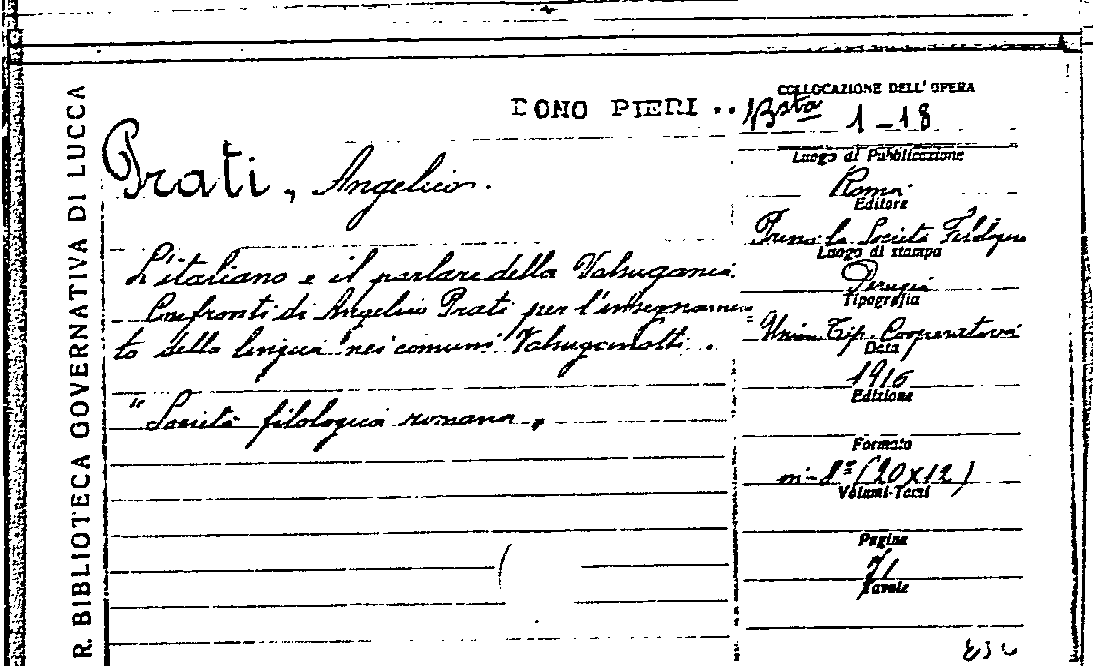 R. BIBLIOTECA GOVERNATIVA DI LUCCA
DONO PIERI ..
COLLOCAZIONE DELL' OPERA
Bsta 1-18
Prati, Angelico.
L'italiano e il parlare della Valsugana.
Confronti di Angelico Prati per l'insegnamen-
to della lingua nei comuni Valsuganotti.
"Società filologica romana„
Luogo di Pubblicazione
Roma
Editore
Presso la Società Filologica
Luogo di stampa
Perugia
Tipografia
Unione Tip. Cooperativa
Data
1916
Edizione
Formato
in-8º (20x12)
Volumi-Tomi
Pagine
71
Tavole